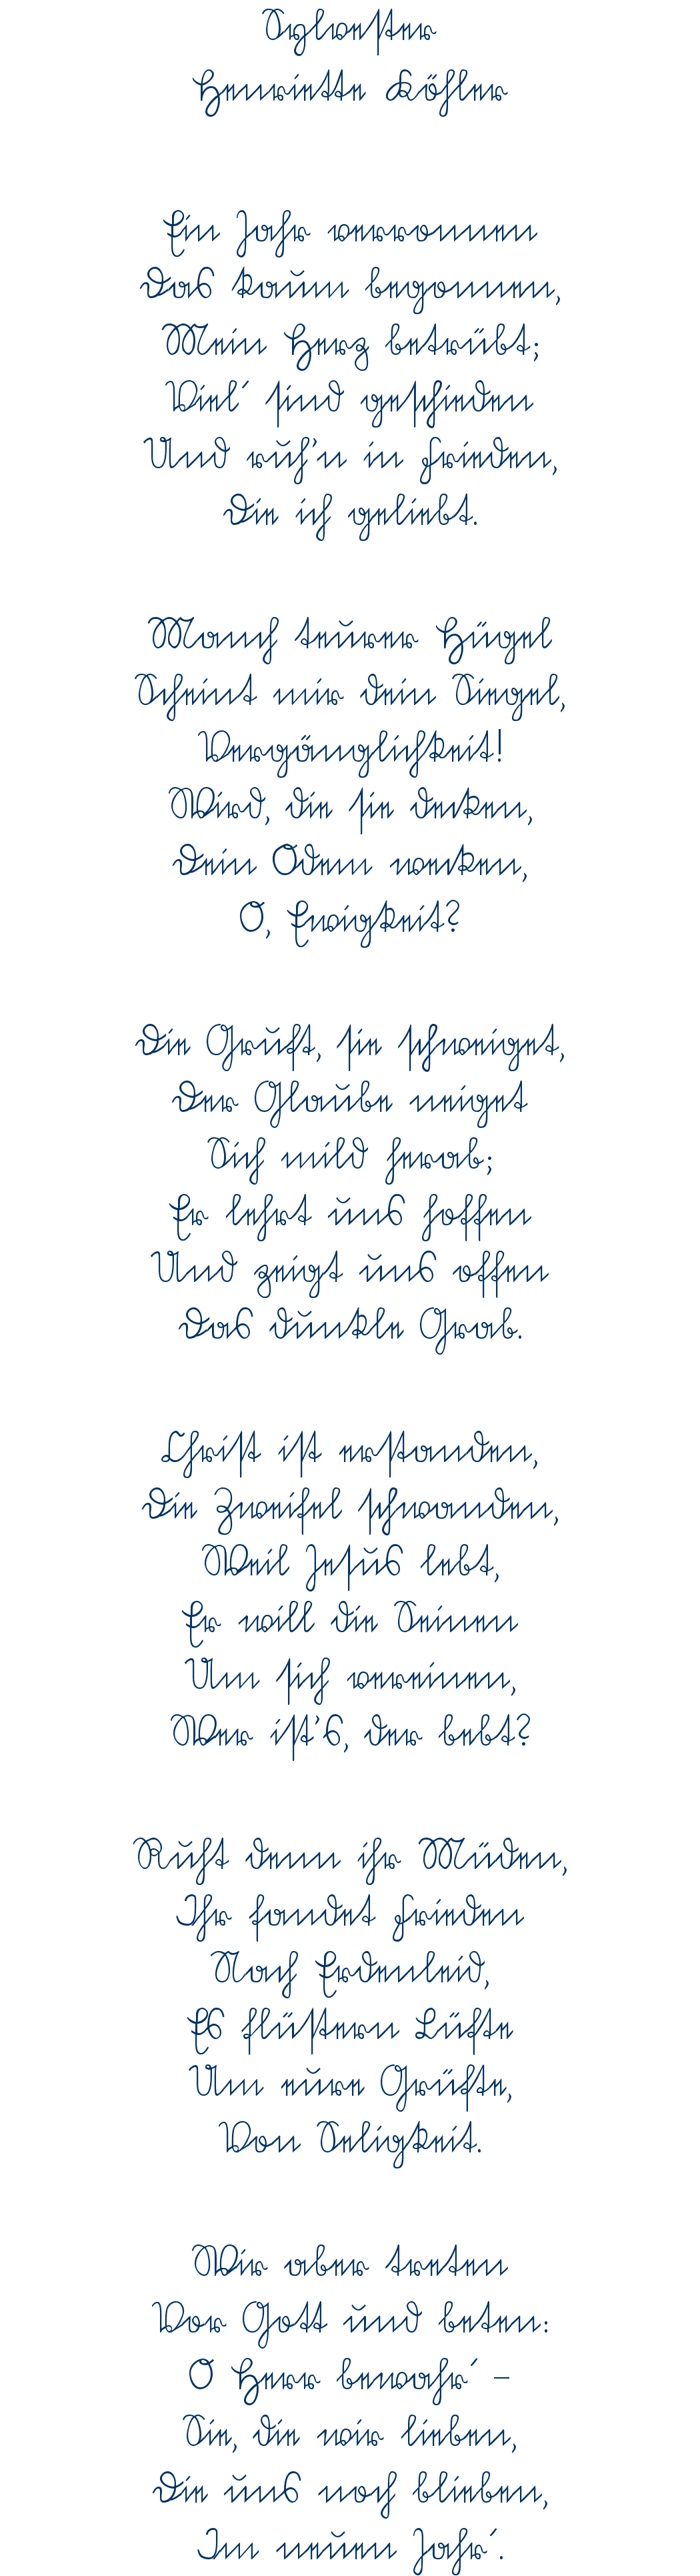 Sylvester
Henriette Köhler
Ein Jahr verronnen
Das kaum begonnen,
Mein Herz betrübt;
Viel´ sind geschieden
Und ruh'n in Frieden,
Die ich geliebt.
Manch teurer Hügel
Scheint mir dein Siegel,
Vergänglichkeit!
Wird, die sie decken,
Dein Odem wecken,
O, Ewigkeit?
Die Gruft, sie schweiget,
Der Glaube neiget
Sich mild herab;
Er lehrt uns hoffen
Und zeigt uns offen
Das dunkle Grab.
Christ ist erstanden,
Die Zweifel schwanden,
Weil Jesus lebt,
Er will die Seinen
Um sich vereinen,
Wer ist's, der bebt?
Ruht denn ihr Müden,
Ihr fandet Frieden
Nach Erdenleid,
Es flüstern Lüfte
Um eure Grüfte,
Von Seligkeit.
Wir aber treten
Vor Gott und beten:
O Herr bewahr´ –
Sie, die wir lieben,
Die uns noch blieben,
Im neuen Jahr´.